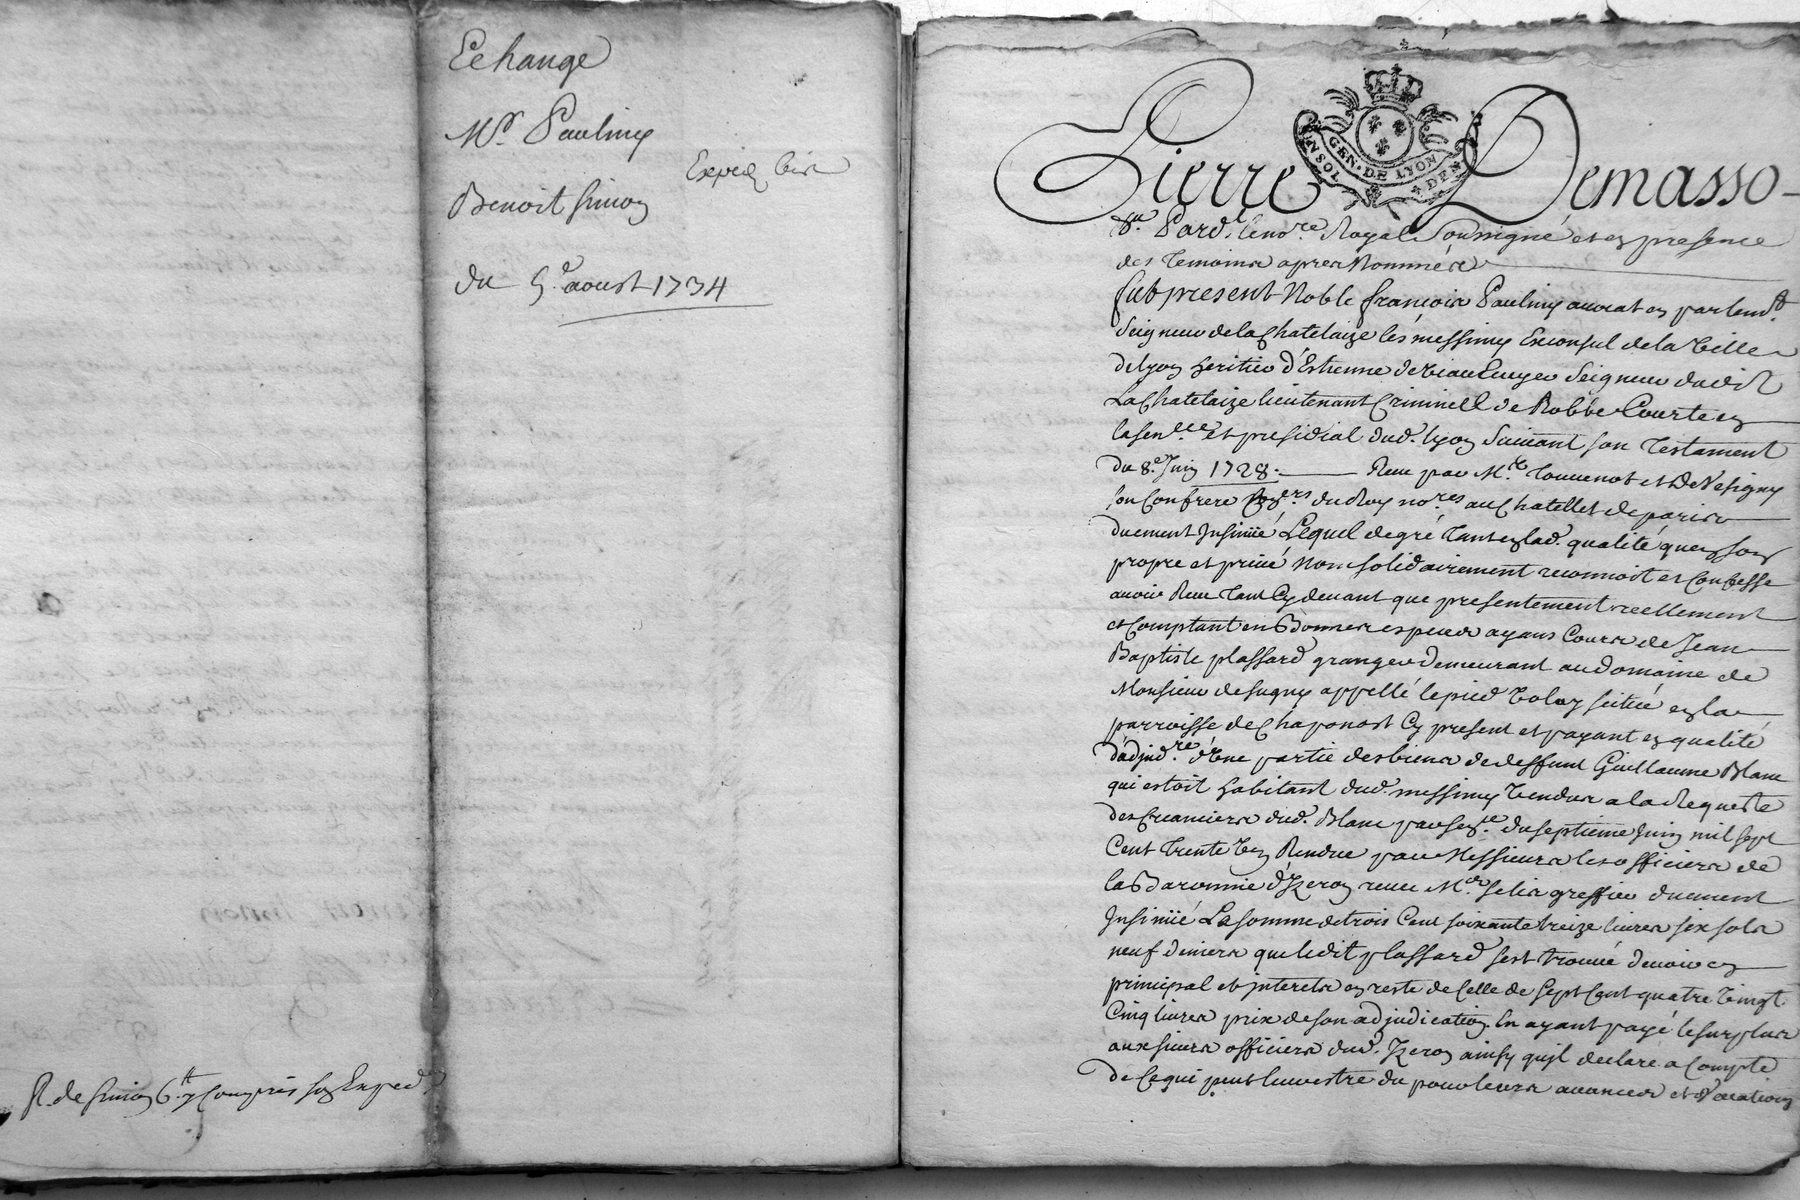 Echange
Mr. Pauliny
Expié bis
Benoit Simon
du 5e. aoust 1734
R. de Simon 6tt y compris son Exped.
GEN. DE LYON
UN SOL
Pierre Demasso-
Par d. le nore. Royal Soussigné et en presence
des Temoins apres Nommés
fut present Noble françois Pauliny auocat en parlemt.
Seigneur de la Chatelaize les messimy Exconsul de la Ville
de lyon heritier d'Estienne de Seigneur dudit
La Chatelaize lieutenant Criminell de Robbe Courte en
la Senccée et presidial dud. lyon Suiuant son Testament
du 8e. Juin 1728. Receu par Me. Touuenot et
son Confrere Consers du Roy nores au Chatellet de paris
duement Insinüé Lequel de gré Tant en lad. qualité qu'en son
propre et priué Nom solidairement reconnoit et Confesse
auoir Receu Tant Cy deuant que presentement reellement
et Comptant en Bonnes especes ayans Cours de Jean
Baptiste plassard granger demeurant au domaine de
Monsieur de Sugny appellé le pied scitué en la
parroisse de Chaponost Cy present et payant en qualité
d'adjudre. d'Vne partie des biens de deffunt Guillaume Blanc
qui estoit habitant dud. messimy Vendus a la Requeste
des Creanciers dud. Blanc par Sence. du septieme Juin mil sept
Cent Trente Vn Rendue par Messieurs les officiers de
la Baronnie d'Yzeron receu Me. greffier duement
Insinüé La somme de trois Cent soixante treize liures six sols
neuf deniers que ledit plassard s'est trouué deuoir en
principal et interets en reste de Celle de Sept Cent quatre Vingt
Cinq liures prix de son adjudication En ayant payé le surplus
aux sieurs officiers dud. Yzeron ainsy qu'il declare a Compte
de Ce qui peut leur estre du pour leurs auances et Vacations